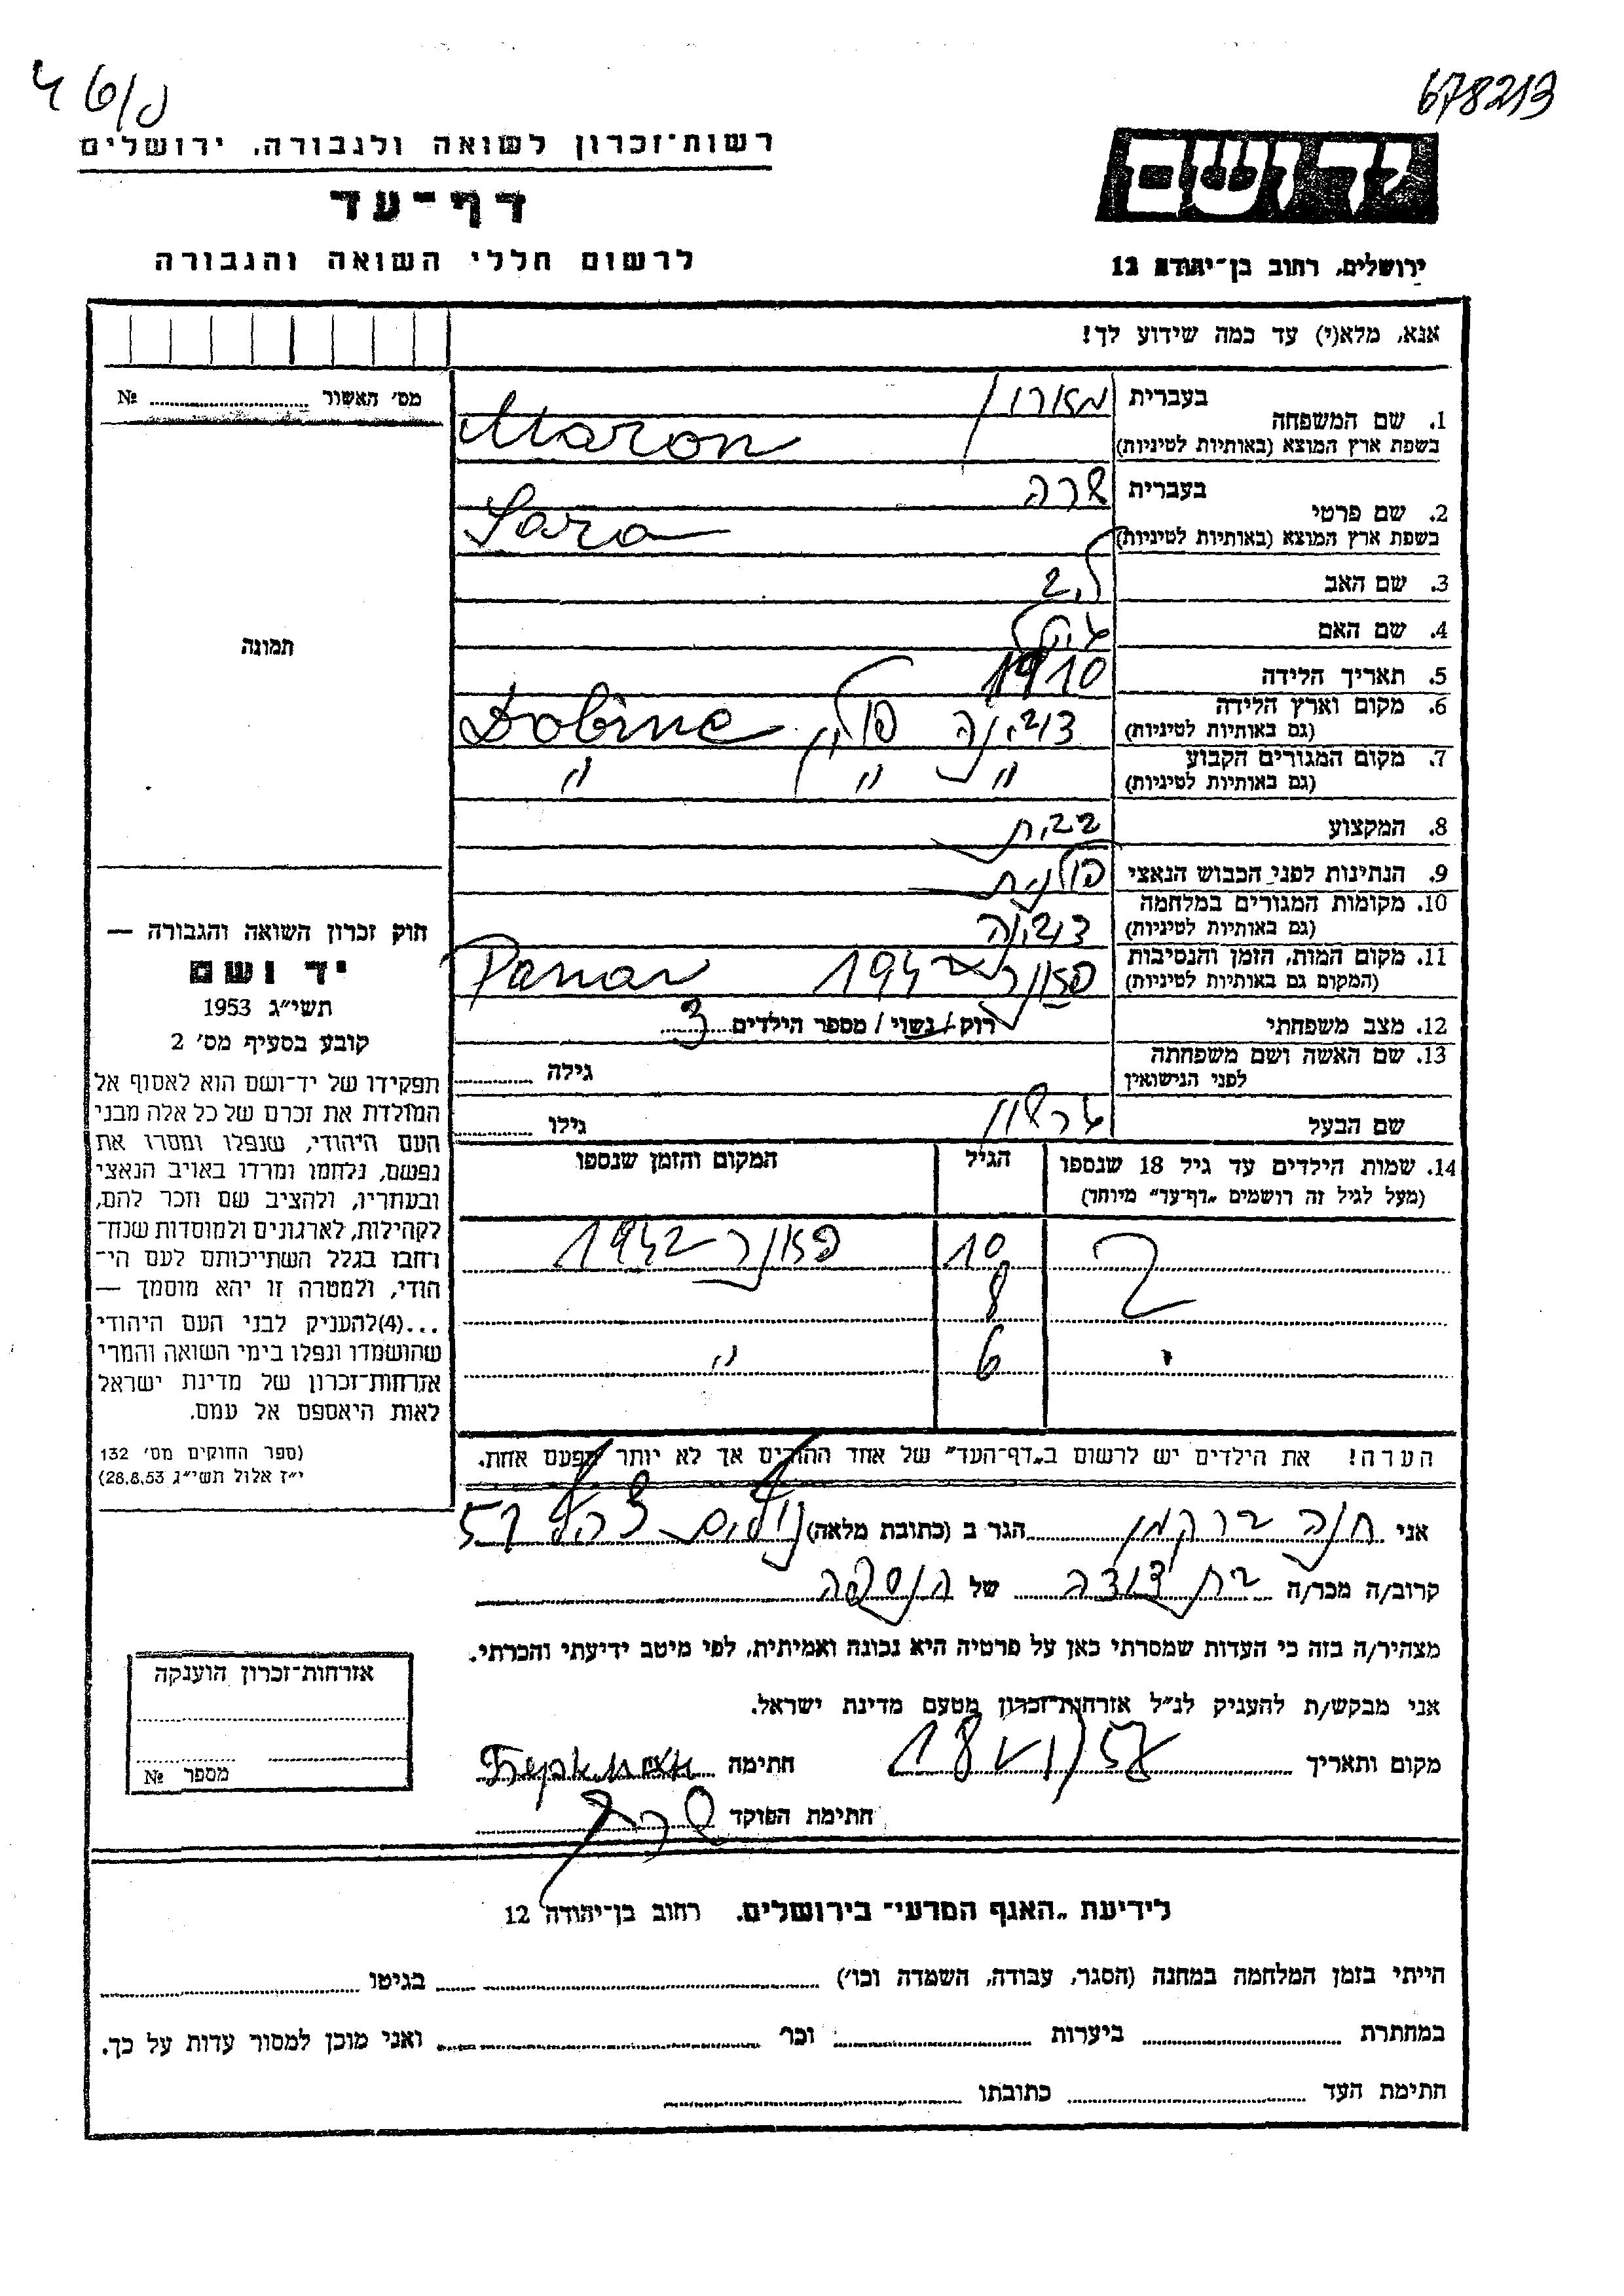 678213
רשות־זכרון לשואה ולגבורה, ירושלים
יד ושם
דף־עד
לרשום חללי השואה והגבורה
ירושלים, רחוב בן־יהודה 12
אנא, מלא(י) עד כמה שידוע לך!
מס׳ האשור № 
1. שם המשפחה
בעברית מארון
בשפת ארץ המוצא (באותיות לטיניות) Maron
2. שם פרטי
בעברית שרה
בשפת ארץ המוצא (באותיות לטיניות) Sara
3. שם האב
4. שם האם
5. תאריך הלידה 1910
6. מקום וארץ הלידה
(גם באותיות לטיניות) דובינה פולין Dobine
7. מקום המגורים הקבוע
(גם באותיות לטיניות) " " "
8. המקצוע
9. הנתינות לפני הכבוש הנאצי פולנית
10. מקומות המגורים במלחמה
(גם באותיות לטיניות) דובינה
11. מקום המות, הזמן והנסיבות
(המקום גם באותיות לטיניות) פאונר 1942 Panar
12. מצב משפחתי רוק / נשוי / מספר הילדים 3
13. שם האשה ושם משפחתה
לפני הנישואין
גילה
שם הבעל
גילו
14. שמות הילדים עד גיל 18 שנספו
(מעל לגיל זה רושמים „דף־עד״ מיוחד)
הגיל
המקום והזמן שנספו
10 פאונר 1942
8
6 "
תמונה
חוק זכרון השואה והגבורה —
יד ושם
תשי״ג 1953
קובע בסעיף מס׳ 2
תפקידו של יד־ושם הוא לאסוף אל
המולדת את זכרם של כל אלה מבני
העם היהודי, שנפלו ומסרו את
נפשם, נלחמו ומרדו באויב הנאצי
ובעוזריו, ולהציב שם וזכר להם,
לקהילות, לארגונים ולמוסדות שנח־
רבו בגלל השתייכותם לעם הי־
הודי, ולמטרה זו יהא מוסמך —
...(4)להעניק לבני העם היהודי
שהושמדו ונפלו בימי השואה והמרי
אזרחות־זכרון של מדינת ישראל
לאות היאספם אל עמם.
(ספר החוקים מס׳ 132
י״ז אלול תשי״ג 28.8.53)
הערה! את הילדים יש לרשום ב„דף־העד״ של אחד ההורים אך לא יותר מפעם אחת.
אני חנה ברקמן הגר ב (כתובת מלאה)
קרוב/ה מכר/ה בת דודה של הנספה
מצהיר/ה בזה כי העדות שמסרתי כאן על פרטיה היא נכונה ואמיתית, לפי מיטב ידיעתי והכרתי.
אני מבקש/ת להעניק לנ״ל אזרחות־זכרון מטעם מדינת ישראל.
מקום ותאריך חתימה
חתימת הפוקד
אזרחות־זכרון הוענקה
מספר №
לידיעת „האגף המדעי״ בירושלים, רחוב בן־יהודה 12
הייתי בזמן המלחמה במחנה (הסגר, עבודה, השמדה וכו׳) בגיטו
במחתרת ביערות וכו׳ ואני מוכן למסור עדות על כך.
חתימת העד כתובתו